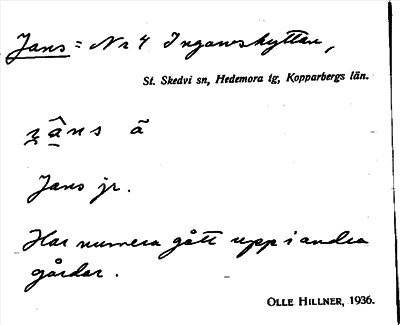 Jans = Nr 4 Ingarvshyttan,
St. Skedvi sn, Hedemora tg, Kopparbergs län.
jâns ã
Jans jr.
Har numera gått upp i andra
gårdar.
OLLE HILLNER, 1936.